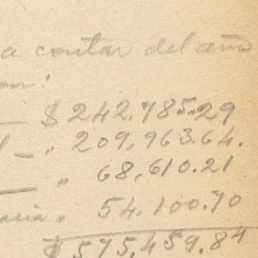 a contar del año
on:
— $ 242,785.29
l — " 209,963.64.
— " 68,610.21
aria " 54,100.70
$ 575,459.84